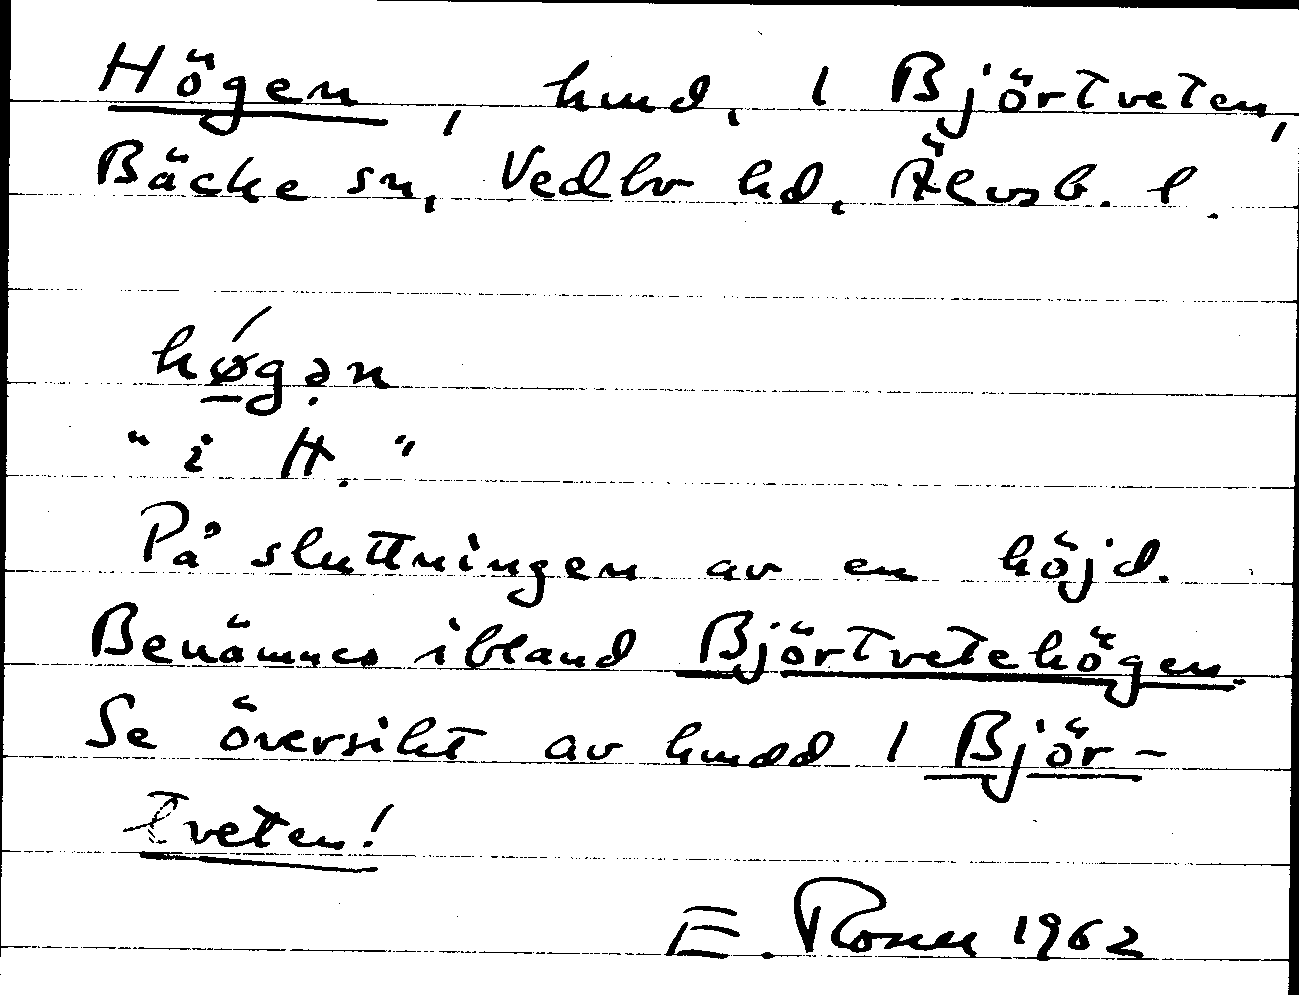 Högen, hmd. / Björtveten,
Bäcke sn, Vedbo hd, Älvsb. l.
hǿgən
"i H."
På sluttningen av en höjd.
Benämnes ibland Björtvetehögen.
Se översikt av hmdd / Björ-
tveten!
E. 1962